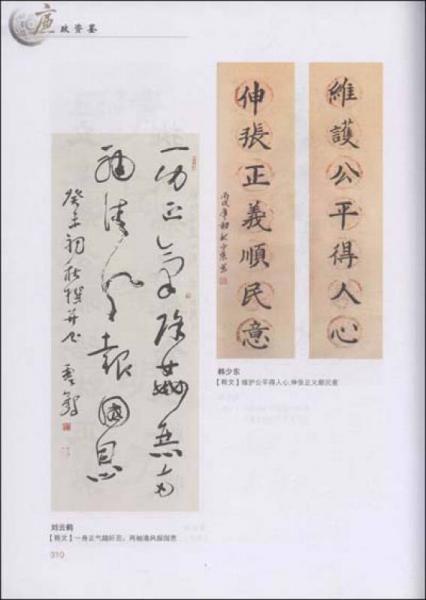 廉政资鉴
維護公平得人心
伸張正義順民意
丙戌年初秋少東書
韩少东
【释文】维护公平得人心,伸张正义顺民意
一切正氣除奸惡
兩袖清風報國恩
癸未初秋撰并书
刘云鹤
【释文】一身正气踏奸恶,两袖清风报国恩
310